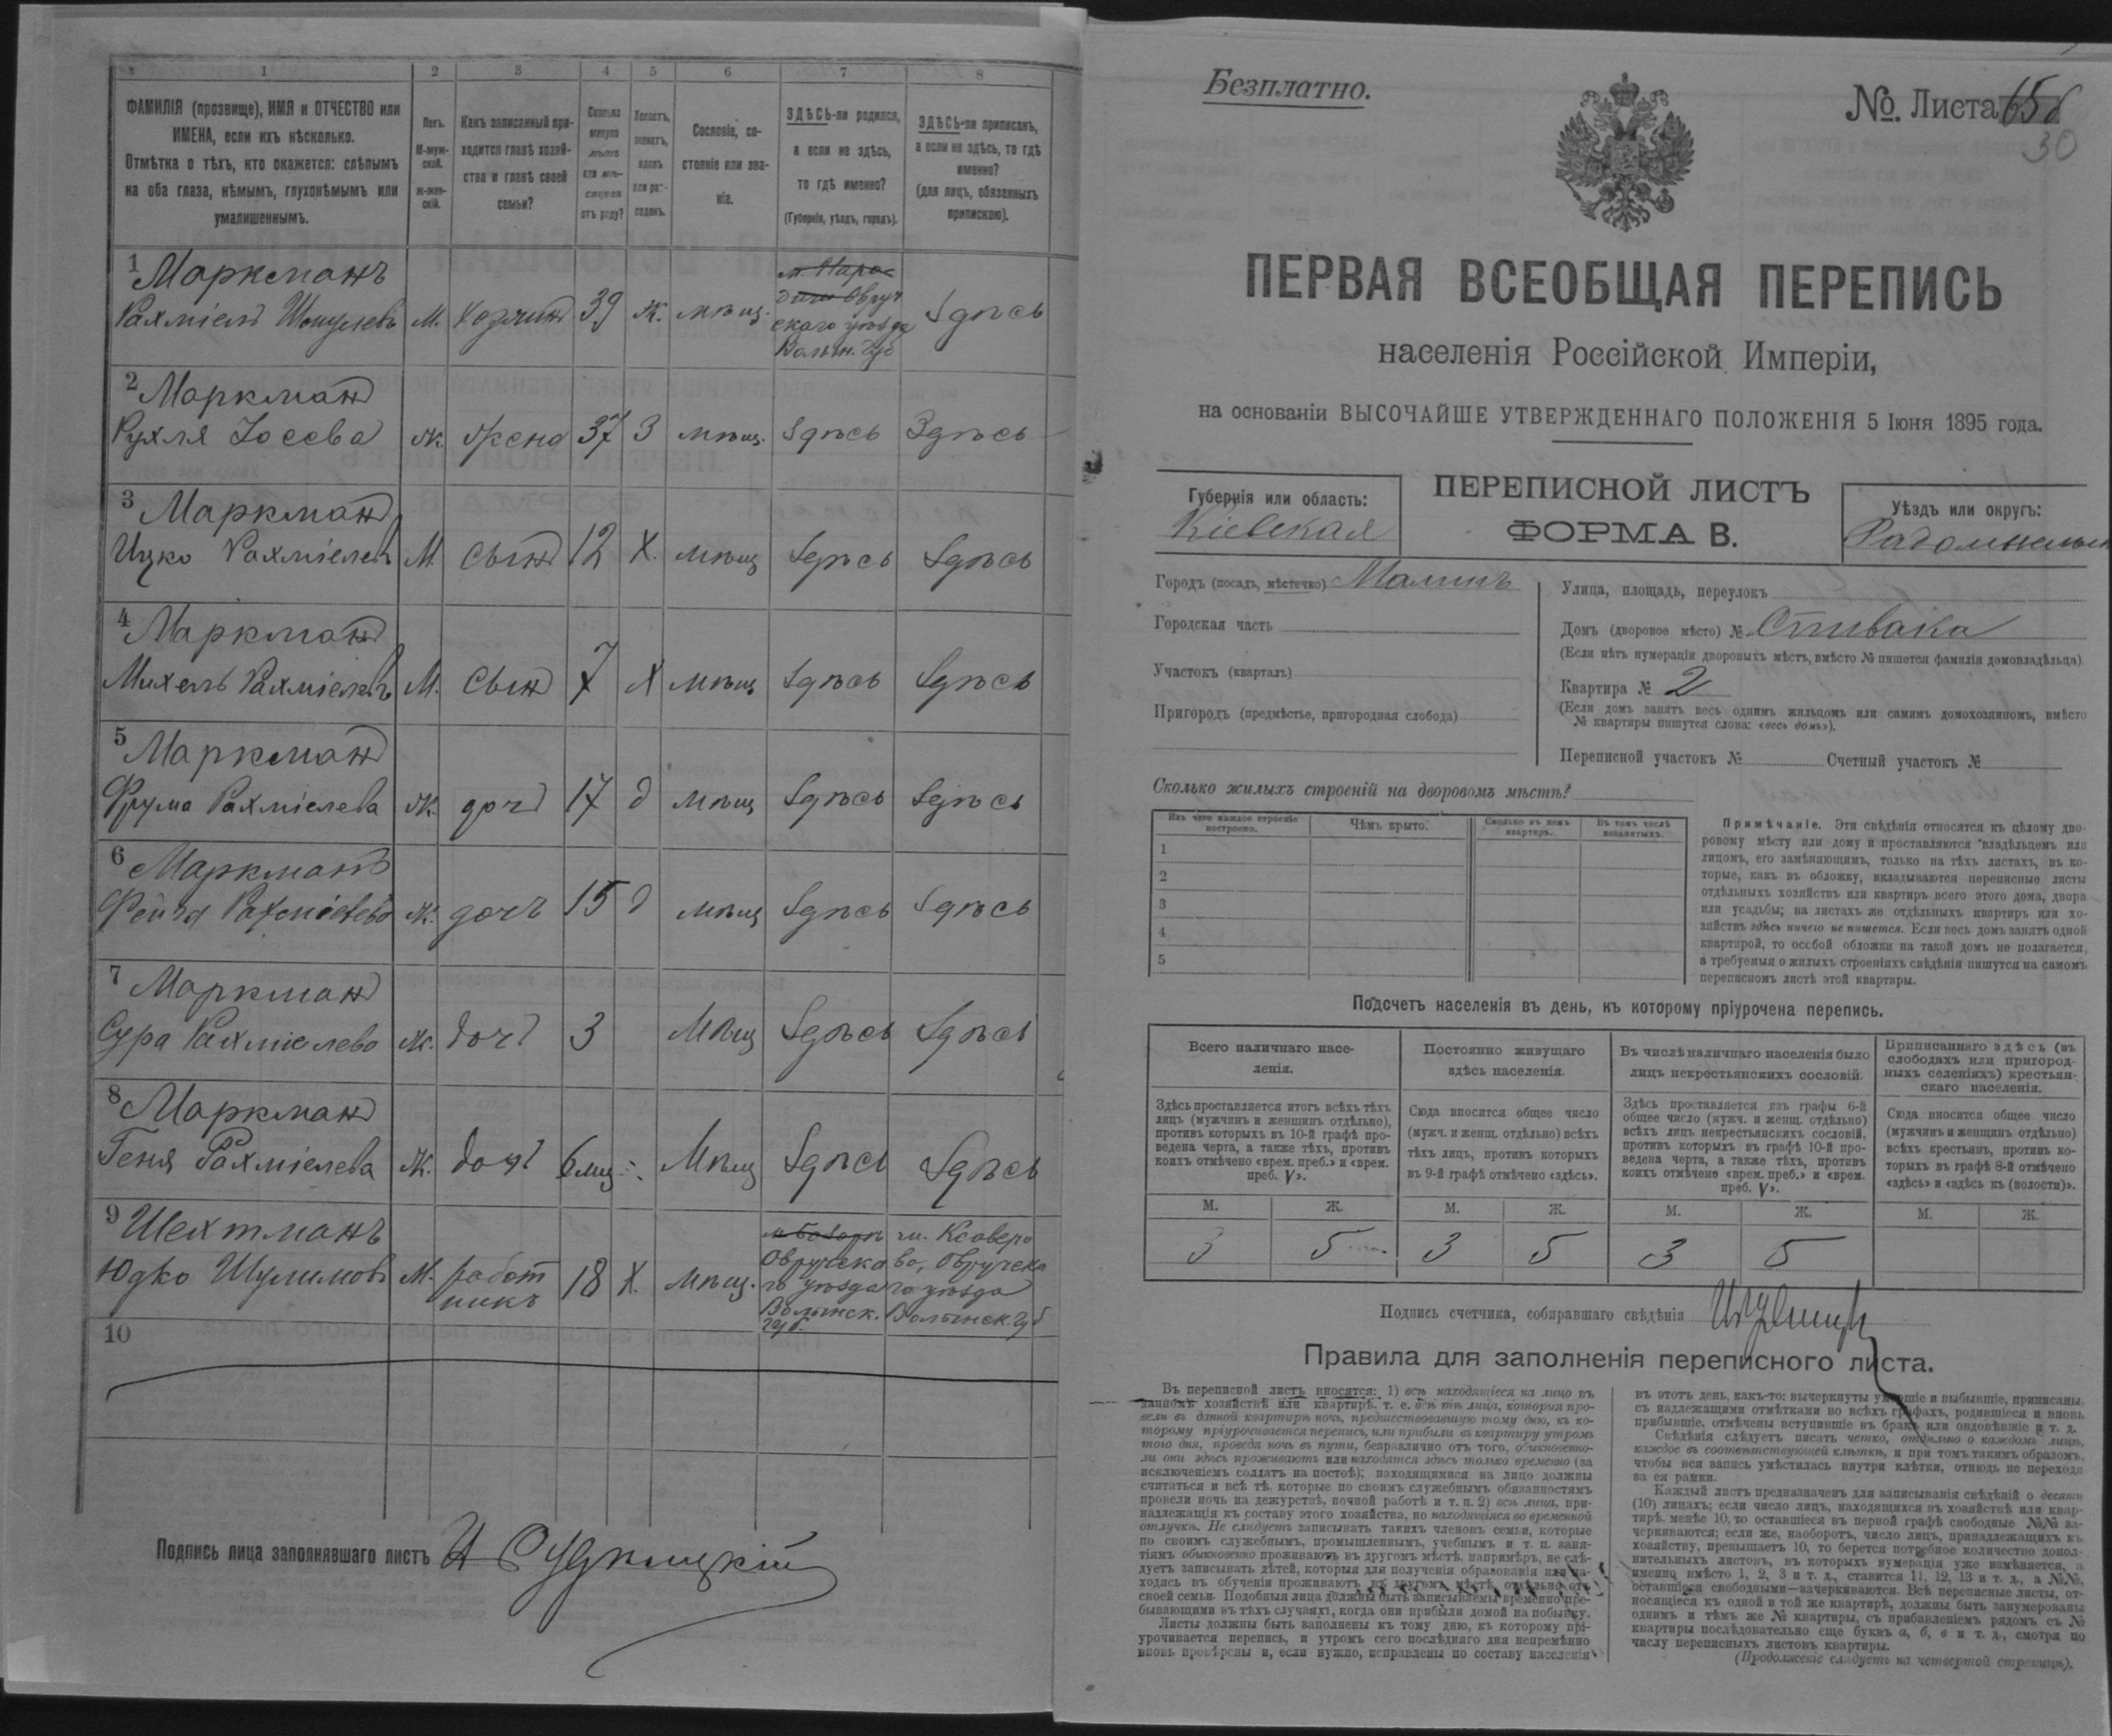 1 2 3 4 5 6 7 8
ФАМИЛІЯ (прозвище), ИМЯ и ОТЧЕСТВО или
ИМЕНА, если ихъ нѣсколько.
Отмѣтка о тѣхъ, кто окажется: слѣпымъ
на оба глаза, нѣмымъ, глухонѣмымъ или
умалишеннымъ.
Полъ.
М-муж-
ской.
ж-жен-
скій.
Какъ записанный при-
ходится главѣ хозяй-
ства и главѣ своей
семьи?
Сколько
минуло
лѣтъ
или мѣ-
сяцевъ
отъ роду?
Холостъ,
женатъ,
вдовъ
или раз-
веденъ.
Сословіе, со-
стояніе или зва-
ніе.
ЗДѢСЬ-ли родился,
а если не здѣсь,
то гдѣ именно?
(Губернія, уѣздъ, городъ).
ЗДѢСЬ-ли приписанъ,
а если не здѣсь, то гдѣ
именно?
(для лицъ, обязанныхъ
припискою).
1 Маркманъ
Рахміель М. хозяинъ 39 ж. мѣщ. Овруч
скаго уѣзда Волын. губ Здѣсь
2 Маркманъ
Рухля Іосева ж. жена 37 З мѣщ. Здѣсь Здѣсь
3 Маркманъ
Ицко Рахміелевъ М. сынъ 12 Х. мѣщ Здѣсь Здѣсь
4 Маркманъ
Михель Рахміелевъ М. сынъ 7 Х мѣщ Здѣсь Здѣсь
5 Маркманъ
Фрума Рахміелева ж. дочь 17 д мѣщ Здѣсь Здѣсь
6 Маркманъ
Фейга Рахміелева ж. дочь 15 д мѣщ Здѣсь Здѣсь
7 Маркманъ
Сура Рахміелева ж. дочь 3 Мѣщ Здѣсь Здѣсь
8 Маркманъ
Геня Рахміелева ж. дочь 6 мц Мѣщ Здѣсь Здѣсь
9 Шехтманъ
Юдко Шулимовъ М. работ
никъ 18 Х. мѣщ.
Овручска
го уѣзда
Волынск.
губ.
м. Ксаверо
во, Овручска
го уѣзда
Волынск. губ
10
Подпись лица заполнявшаго листъ
Безплатно.
№. Листа 65б
30
ПЕРВАЯ ВСЕОБЩАЯ ПЕРЕПИСЬ
населенія Россійской Имперіи,
на основаніи ВЫСОЧАЙШЕ УТВЕРЖДЕННАГО ПОЛОЖЕНІЯ 5 Іюня 1895 года.
Губернія или область:
Кіевская
ПЕРЕПИСНОЙ ЛИСТЪ
ФОРМА В.
Уѣздъ или округъ:
Радомысльск
Городъ (посадъ, мѣстечко) Малинъ
Городская часть
Участокъ (кварталъ)
Пригородъ (предмѣстье, пригородная слобода)
Улица, площадь, переулокъ
Домъ (дворовое мѣсто) № Спивака
(Если нѣтъ нумераціи дворовыхъ мѣстъ, вмѣсто № пишется фамилія домовладѣльца).
Квартира № 2
(Если домъ занятъ весь однимъ жильцомъ или самимъ домохозяиномъ, вмѣсто
№ квартиры пишутся слова: «весь домъ»).
Переписной участокъ № Счетный участокъ №
Сколько жилыхъ строеній на дворовомъ мѣстѣ?
Изъ чего каждое строеніе
построено.
Чѣмъ крыто.
Сколько въ немъ
квартиръ.
Въ томъ числѣ
незанятыхъ.
1
2
3
4
5
Примѣчаніе. Эти свѣдѣнія относятся къ цѣлому дво-
ровому мѣсту или дому и проставляются владѣльцемъ или
лицомъ, его замѣняющимъ, только на тѣхъ листахъ, въ ко-
торые, какъ въ обложку, вкладываются переписные листы
отдѣльныхъ хозяйствъ или квартиръ всего этого дома, двора
или усадьбы; на листахъ же отдѣльныхъ квартиръ или хо-
зяйствъ здѣсь ничего не пишется. Если весь домъ занятъ одной
квартирой, то особой обложки на такой домъ не полагается,
а требуемыя о жилыхъ строеніяхъ свѣдѣнія пишутся на самомъ
переписномъ листѣ этой квартиры.
Подсчетъ населенія въ день, къ которому пріурочена перепись.
Всего наличнаго насе-
ленія.
Постоянно живущаго
здѣсь населенія.
Въ числѣ наличнаго населенія было
лицъ некрестьянскихъ сословій.
Приписаннаго здѣсь (въ
слободахъ или пригород-
ныхъ селеніяхъ) крестьян-
скаго населенія.
Здѣсь проставляется итогъ всѣхъ тѣхъ
лицъ (мужчинъ и женщинъ отдѣльно),
противъ которыхъ въ 10-й графѣ про-
ведена черта, а также тѣхъ, противъ
коихъ отмѣчено «врем. преб.» и «врем.
преб. V».
Сюда вносится общее число
(мужч. и женщ. отдѣльно) всѣхъ
тѣхъ лицъ, противъ которыхъ
въ 9-й графѣ отмѣчено «здѣсь».
Здѣсь проставляется изъ графы 6-й
общее число (мужч. и женщ. отдѣльно)
всѣхъ лицъ некрестьянскихъ сословій,
противъ которыхъ въ графѣ 10-й про-
ведена черта, а также тѣхъ, противъ
коихъ отмѣчено «врем. преб.» и «врем.
преб. V».
Сюда вносится общее число
(мужчинъ и женщинъ отдѣльно)
всѣхъ крестьянъ, противъ ко-
торыхъ въ графѣ 8-й отмѣчено
«здѣсь» и «здѣсь къ (волости)».
М. Ж. М. Ж. М. Ж. М. Ж.
3 5 3 5 3 5
Подпись счетчика, собиравшаго свѣдѣнія
Правила для заполненія переписного листа.
Въ переписной листъ вносятся: 1) всѣ находящіеся на лицо въ
данномъ хозяйствѣ или квартирѣ, т. е. всѣ тѣ лица, которыя про-
вели въ данной квартирѣ ночь, предшествовавшую тому дню, къ ко-
торому пріурочивается перепись, или прибыли въ квартиру утромъ
того дня, проведя ночь въ пути, безразлично отъ того, обыкновенно-
ли они здѣсь проживаютъ или находятся здѣсь только временно (за
исключеніемъ солдатъ на постоѣ); находящимися на лицо должны
считаться и всѣ тѣ, которые по своимъ служебнымъ обязанностямъ
провели ночь на дежурствѣ, ночной работѣ и т. п. 2) всѣ лица, при-
надлежащія къ составу этого хозяйства, но находящіяся во временной
отлучкѣ. Не слѣдуетъ записывать такихъ членовъ семьи, которые
по своимъ служебнымъ, промышленнымъ, учебнымъ и т. п. заня-
тіямъ обыкновенно проживаютъ въ другомъ мѣстѣ, напримѣръ, не слѣ-
дуетъ записывать дѣтей, которыя для полученія образованія или на-
ходясь въ обученіи проживаютъ въ другомъ мѣстѣ, отдѣльно отъ
своей семьи. Подобныя лица должны быть записываемы временно пре-
бывающими въ тѣхъ случаяхъ, когда они прибыли домой на побывку.
Листы должны быть заполнены къ тому дню, къ которому прі-
урочивается перепись, и утромъ сего послѣдняго дня непремѣнно
вновь провѣрены и, если нужно, исправлены по составу населенія
въ этотъ день, какъ-то: вычеркнуты умершіе и выбывшіе, приписаны,
съ надлежащими отмѣтками во всѣхъ графахъ, родившіеся и вновь
прибывшіе, отмѣчены вступившіе въ бракъ или овдовѣвшіе и т. д.
Свѣдѣнія слѣдуетъ писать четко, отдѣльно о каждомъ лицѣ,
каждое въ соотвѣтствующей клѣткѣ, и при томъ такимъ образомъ,
чтобы вся запись умѣстилась внутри клѣтки, отнюдь не переходя
за ея рамки.
Каждый листъ предназначенъ для записыванія свѣдѣній о десяти
(10) лицахъ; если число лицъ, находящихся въ хозяйствѣ или квар-
тирѣ, менѣе 10, то оставшіеся въ первой графѣ свободные №№ за-
черкиваются; если же, наоборотъ, число лицъ, принадлежащихъ къ
хозяйству, превышаетъ 10, то берется потребное количество допол-
нительныхъ листовъ, въ которыхъ нумерація уже измѣняется, а
именно вмѣсто 1, 2, 3 и т. д., ставится 11, 12, 13 и т. д., а №№,
оставшіеся свободными—зачеркиваются. Всѣ переписные листы, от-
носящіеся къ одной и той же квартирѣ, должны быть занумерованы
однимъ и тѣмъ же № квартиры, съ прибавленіемъ рядомъ съ №
квартиры послѣдовательно еще буквъ а, б, в и т. д., смотря по
числу переписныхъ листовъ квартиры.
(Продолженіе слѣдуетъ на четвертой страницѣ).